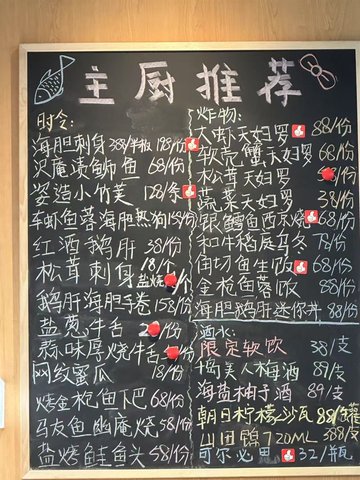 主厨推荐
时令:
海胆刺身 388/半板 128/份
汉庵渍鲕鱼 68/份
姿造小竹荚 128/条
车虾鱼蓉海胆热狗 158/份
红酒鹅肝 38/份
松茸刺身 18/个
盐烧 /个
鹅肝海胆手卷 158/份
盐葱牛舌 /份
蒜味厚烧牛舌 /份
网纹蜜瓜 18/份
烤金枪鱼下巴 68/份
马友鱼幽庵烧 58/份
盐烤鲑鱼头 58/份
炸物:
大虾天妇罗 88/份
软壳蟹天妇罗 68/份
松茸天妇罗 /份
蔬菜天妇罗 38/份
银鳕鱼西京烧 68/份
和牛稻庭乌冬 78/份
角切鱼生饭 68/份
金枪鱼蓉饭 88/份
海胆鹅肝迷你丼 88/份
酒水:
限定软饮 38/支
美人梅酒 89/支
海盐柚子酒 89/支
朝日柠檬沙瓦 88/罐
山田锦720ML 388/支
可尔必思 32/瓶